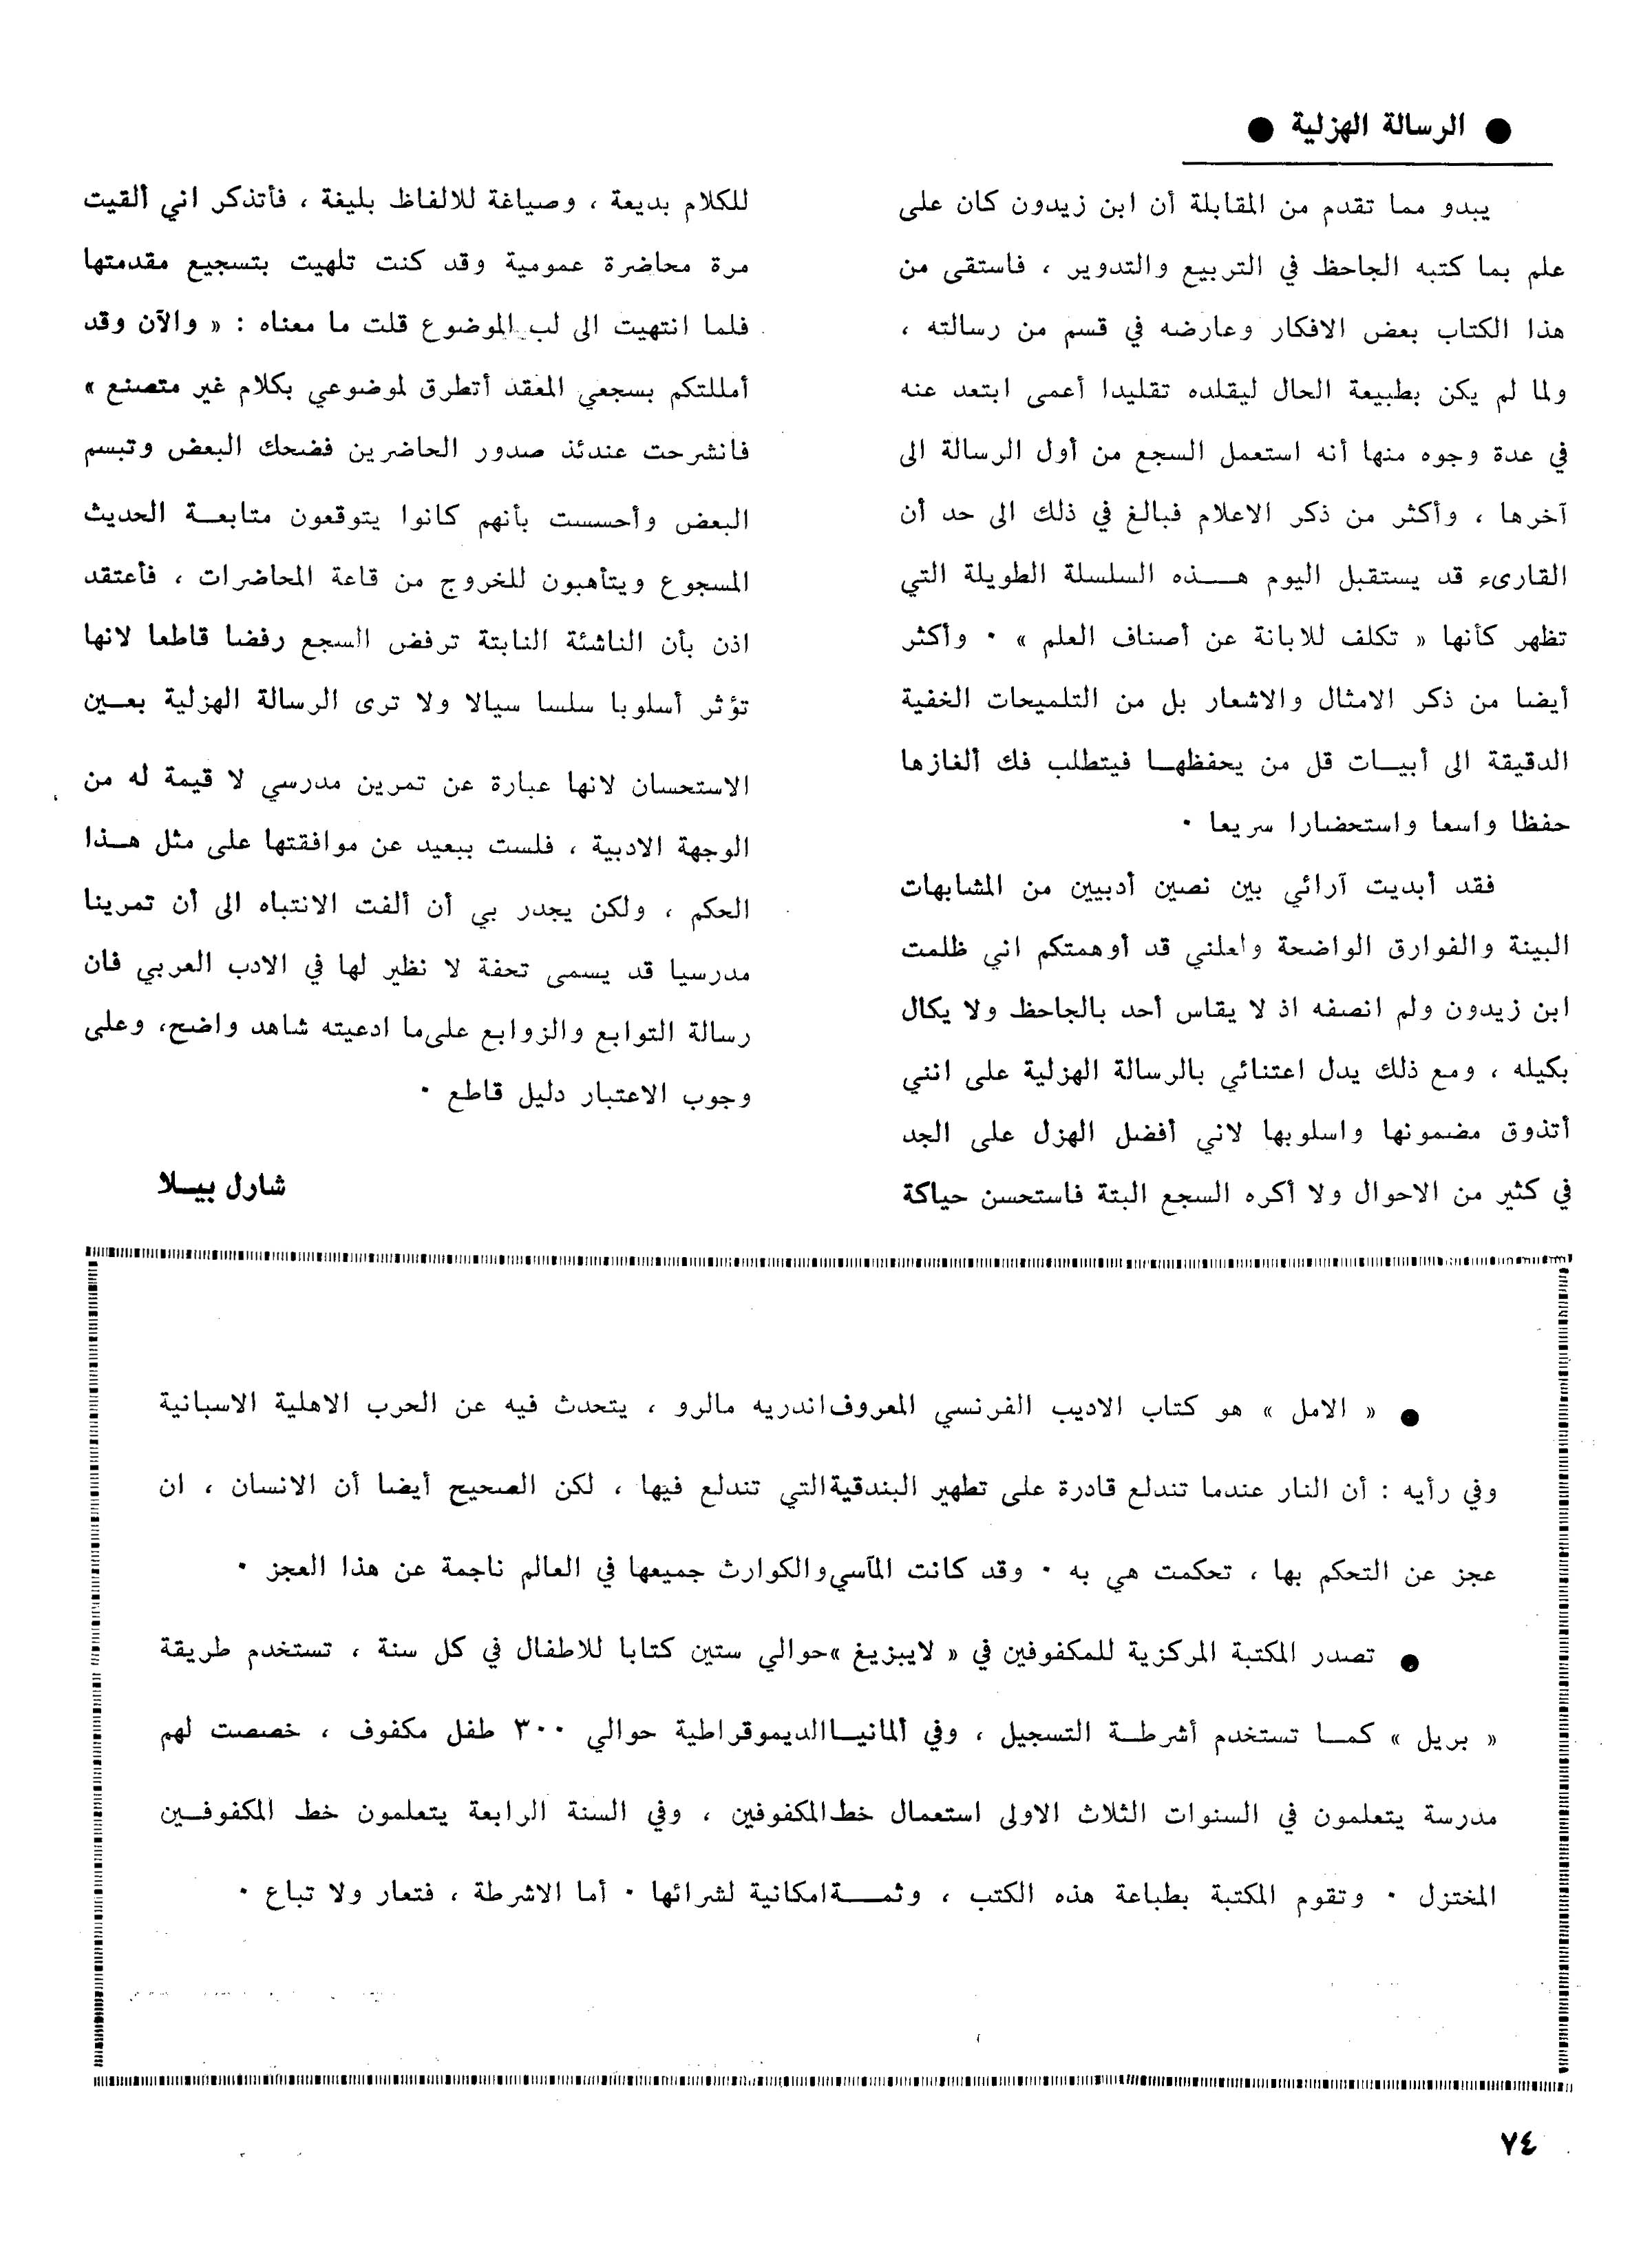 ● الرسالة الهزلية ●
يبدو مما تقدم من المقابلة أن ابن زيدون كان على
علم بما كتبه الجاحظ في التربيع والتدوير ، فاستقى من
هذا الكتاب بعض الافكار وعارضه في قسم من رسالته ،
ولما لم يكن بطبيعة الحال ليقلده تقليدا أعمى ابتعد عنه
في عدة وجوه منها أنه استعمل السجع من أول الرسالة الى
آخرها ، وأكثر من ذكر الاعلام فبالغ في ذلك الى حد أن
القارىء قد يستقبل اليوم هذه السلسلة الطويلة التي
تظهر كأنها « تكلف للابانة عن أصناف العلم » ٠ وأكثر
أيضا من ذكر الامثال والاشعار بل من التلميحات الخفية
الدقيقة الى أبيات قل من يحفظها فيتطلب فك ألغازها
حفظا واسعا واستحضارا سريعا ٠
فقد أبديت آرائي بين نصين أدبيين من المشابهات
البينة والفوارق الواضحة ولعلني قد أوهمتكم اني ظلمت
ابن زيدون ولم انصفه اذ لا يقاس أحد بالجاحظ ولا يكال
بكيله ، ومع ذلك يدل اعتنائي بالرسالة الهزلية على انني
أتذوق مضمونها واسلوبها لاني أفضل الهزل على الجد
في كثير من الاحوال ولا أكره السجع البتة فاستحسن حياكة
للكلام بديعة ، وصياغة للالفاظ بليغة ، فأتذكر اني ألقيت
مرة محاضرة عمومية وقد كنت تلهيت بتسجيع مقدمتها
فلما انتهيت الى لب الموضوع قلت ما معناه : « والآن وقد
أمللتكم بسجعي المعقد أتطرق لموضوعي بكلام غير متصنع »
فانشرحت عندئذ صدور الحاضرين فضحك البعض وتبسم
البعض وأحسست بأنهم كانوا يتوقعون متابعة الحديث
المسجوع ويتأهبون للخروج من قاعة المحاضرات ، فأعتقد
اذن بأن الناشئة النابتة ترفض السجع رفضا قاطعا لانها
تؤثر أسلوبا سلسا سيالا ولا ترى الرسالة الهزلية بعين
الاستحسان لانها عبارة عن تمرين مدرسي لا قيمة له من
الوجهة الادبية ، فلست ببعيد عن موافقتها على مثل هذا
الحكم ، ولكن يجدر بي أن ألفت الانتباه الى أن تمرينا
مدرسيا قد يسمى تحفة لا نظير لها في الادب العربي فان
رسالة التوابع والزوابع على ما ادعيته شاهد واضح، وعلى
وجوب الاعتبار دليل قاطع ٠
شارل بيلا
● « الامل » هو كتاب الاديب الفرنسي المعروف اندريه مالرو ، يتحدث فيه عن الحرب الاهلية الاسبانية
وفي رأيه : أن النار عندما تندلع قادرة على تطهير البندقية التي تندلع فيها ، لكن الصحيح أيضا أن الانسان ، ان
عجز عن التحكم بها ، تحكمت هي به ٠ وقد كانت المآسي والكوارث جميعها في العالم ناجمة عن هذا العجز ٠
● تصدر المكتبة المركزية للمكفوفين في « لايبزيغ » حوالي ستين كتابا للاطفال في كل سنة ، تستخدم طريقة
« بريل » كما تستخدم أشرطة التسجيل ، وفي ألمانيا الديموقراطية حوالي ٣٠٠ طفل مكفوف ، خصصت لهم
مدرسة يتعلمون في السنوات الثلاث الاولى استعمال خط المكفوفين ، وفي السنة الرابعة يتعلمون خط المكفوفين
المختزل ٠ وتقوم المكتبة بطباعة هذه الكتب ، وثمة امكانية لشرائها ٠ أما الاشرطة ، فتعار ولا تباع ٠
٧٤